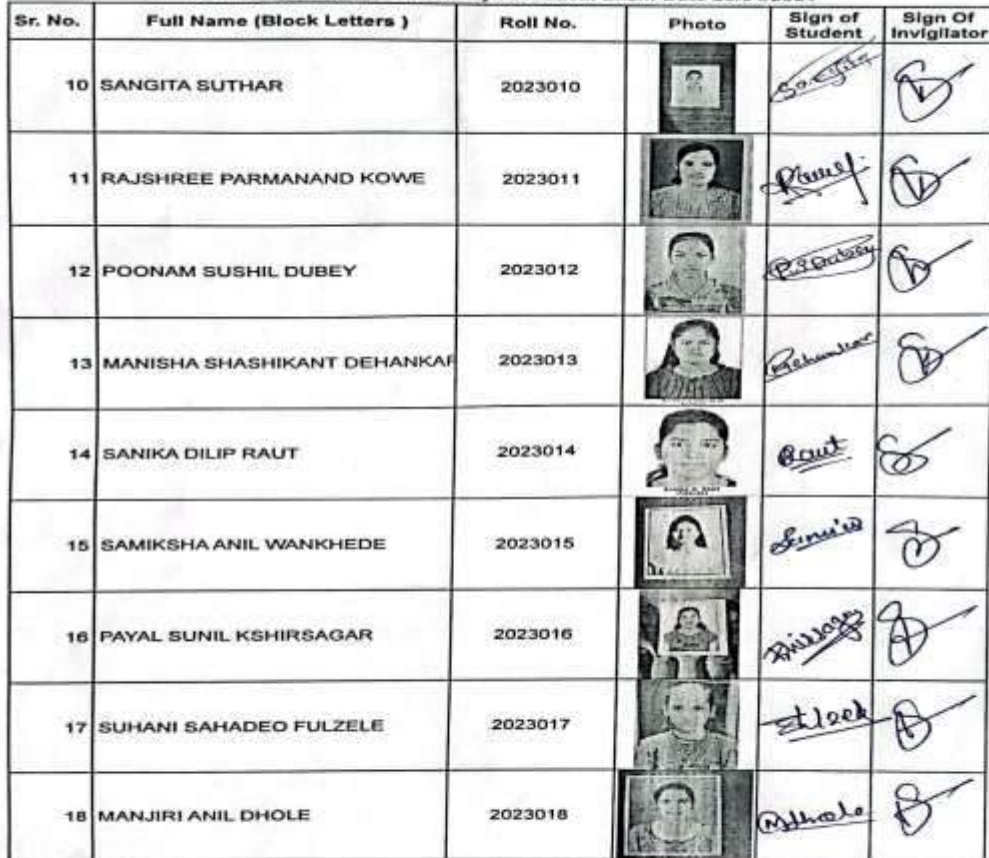 Sr. No. Full Name (Block Letters ) Roll No. Photo Sign of Student Sign Of Invigilator
10 SANGITA SUTHAR 2023010 Sangita
11 RAJSHREE PARMANAND KOWE 2023011
12 POONAM SUSHIL DUBEY 2023012 P.S Dubey
13 MANISHA SHASHIKANT DEHANKAR 2023013
14 SANIKA DILIP RAUT 2023014 Raut
15 SAMIKSHA ANIL WANKHEDE 2023015
16 PAYAL SUNIL KSHIRSAGAR 2023016
17 SUHANI SAHADEO FULZELE 2023017
18 MANJIRI ANIL DHOLE 2023018